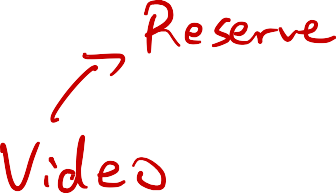 Reserve
Video